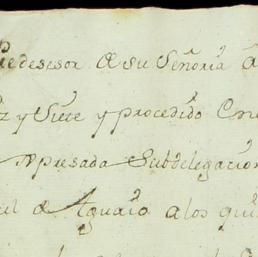 Predesesor de su Señoria a
z y Siete y procedido Con
xpresada Subdelegacion
el de Aguaio a los qu